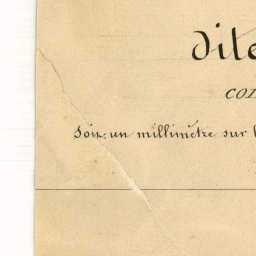 dite
con
Soit: un millimètre sur l